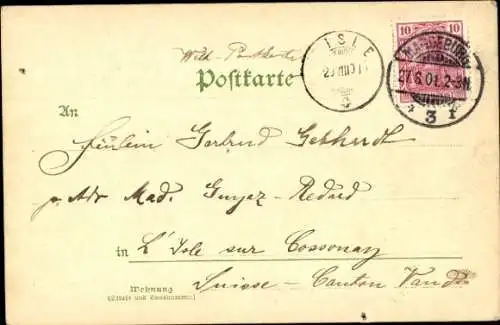 10 10
Welt-Postkarte
ISLE
MAGDEBURG
27.6.01.2-3N.
* 3 r
Postkarte
An
Fräulein Gertrud Gebhardt
p. Adr Mad. Guyaz-Redard
in L'Isle sur Cossonay
Suisse - Canton Vaud
Wohnung
(Straße und Hausnummer)